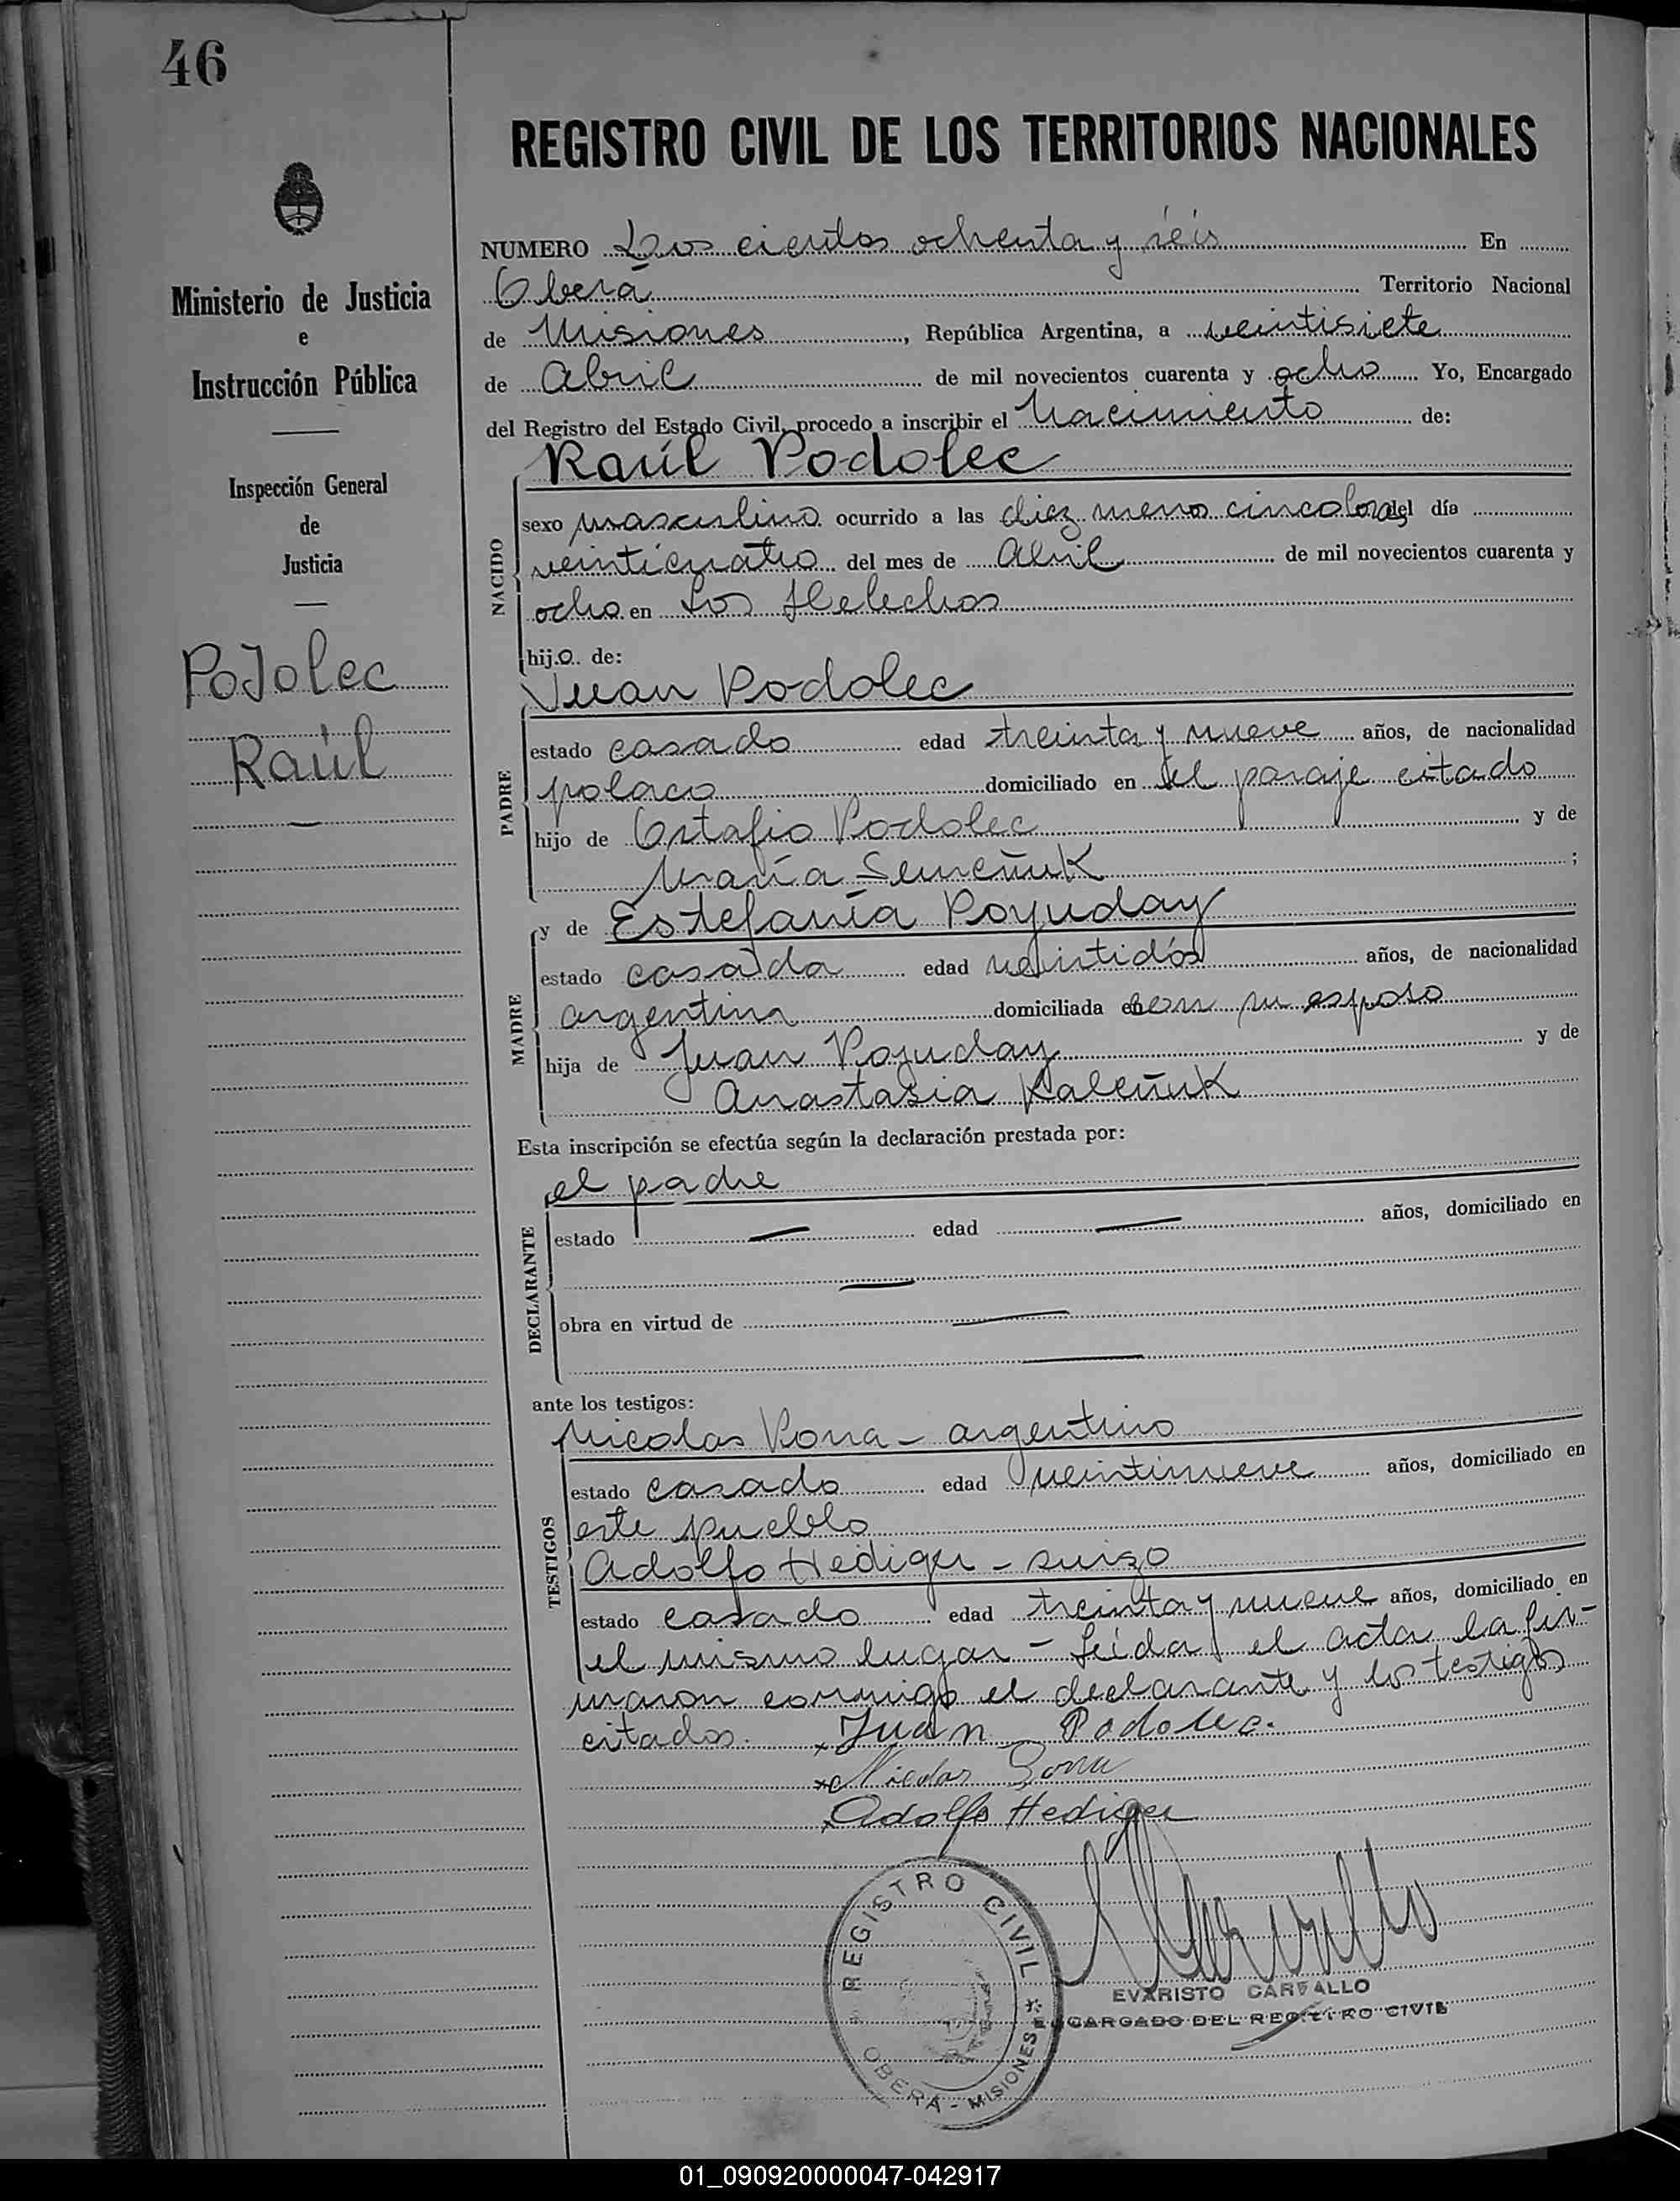 46
REGISTRO CIVIL DE LOS TERRITORIOS NACIONALES
Ministerio de Justicia
e
Instrucción Pública
Inspección General
de
Justicia
Podolec
Raúl
NUMERO Dos cientos ochenta y séis En
Oberá Territorio Nacional
de Misiones, República Argentina, a veintisiete
de Abril de mil novecientos cuarenta y ocho Yo, Encargado
del Registro del Estado Civil, procedo a inscribir el Nacimiento de:
Raúl Podolec
NACIDO
sexo masculino ocurrido a las diez menos cinco horas del día
veinticuatro del mes de Abril de mil novecientos cuarenta y
ocho en Los Helechos
hijo de:
Juan Podolec
PADRE
estado casado edad treinta y nueve años, de nacionalidad
polaco domiciliado en el paraje citado
hijo de Ostafio Podolec y de
María Semeñuk;
MADRE
y de Estefanía Poyuday
estado casada edad veintidós años, de nacionalidad
argentina domiciliada con su esposo
hija de Juan Poyuday y de
Anastasia Kaleñuk
Esta inscripción se efectúa según la declaración prestada por:
el padre
DECLARANTE
estado — edad — años, domiciliado en
—
obra en virtud de —
—
ante los testigos:
Nicolas Pona - argentino
TESTIGOS
estado casado edad veintinueve años, domiciliado en
este pueblo
Adolfo Hediger - suizo
estado casado edad treinta y nueve años, domiciliado en
el mismo lugar - Leída el acta, la fir-
maron conmigo el declarante y los testigos
citados. Juan Podolec.
Nicolas
Adolfo Hediger
REGISTRO CIVIL
OBERÁ - MISIONES
EVARISTO CARVALLO
ENCARGADO DEL REGISTRO CIVIL
01_090920000047-042917